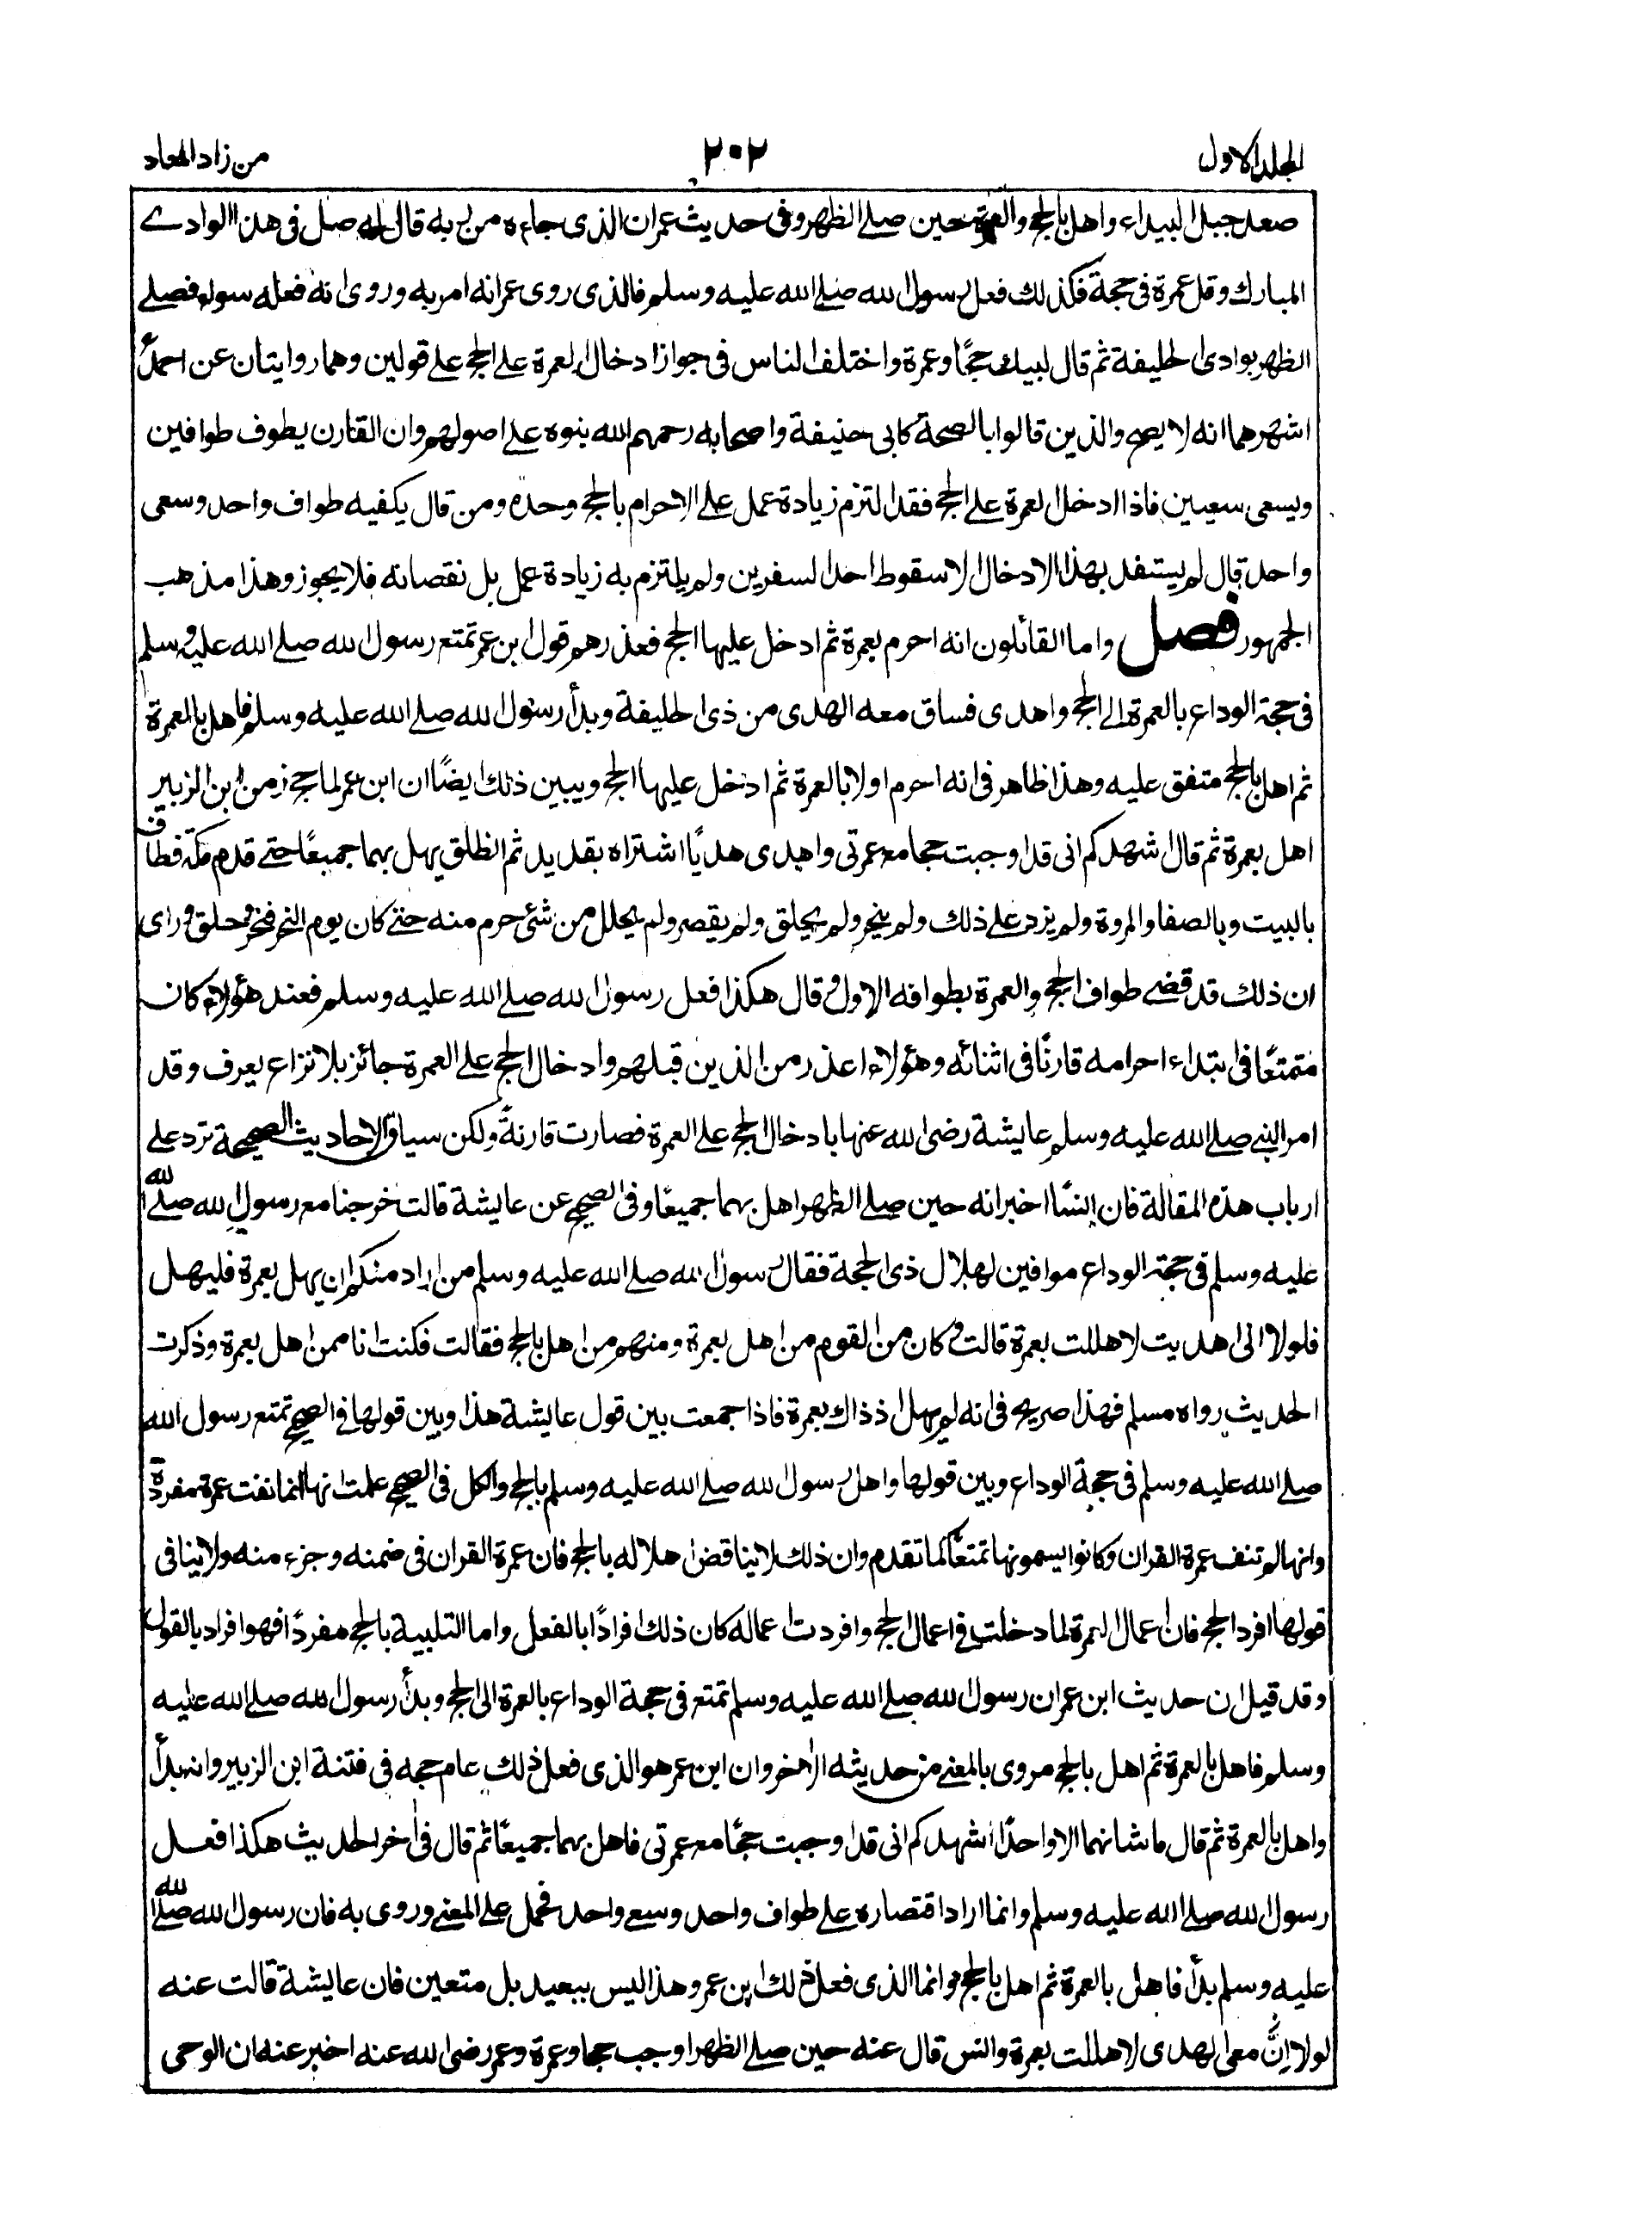 المجلد الاول
٢٠٢
من زاد المعاد
صعد جبل البيداء واهل بالحج والعمرة حين صلے الظهر وفى حديث عمر ان الذى جاءه من ربه قال له صل فى هذا الوادے
المبارك وقل عمرة فى حجة فكذلك فعل رسول الله صلے الله عليه وسلم فالذى روى عمر انه امر به وروى انه فعله سواء فصلے
الظهر بوادى الحليفة ثم قال لبيك حجًا وعمرة واختلف الناس فى جواز ادخال العمرة علے الحج علے قولين وهما روايتان عن احمدؒ
اشهرهما انه لا يصح والذين قالوا بالصحة كابى حنيفة واصحابه رحمهم الله بنوه علے اصولهم وان القارن يطوف طوافين
ويسعى سعيين فاذا ادخل العمرة علے الحج فقد التزم زيادة عمل علے الاحرام بالحج وحده ومن قال يكفيه طواف واحد وسعى
واحد قال لم يستفد بهذا الادخال الا سقوط احد السفرين ولم يلتزم به زيادة عمل بل نقصانه فلا يجوز وهذا مذهب
الجمهور فصل واما القائلون انه احرم بعمرة ثم ادخل عليها الحج فعذرهم قول ابن عمر تمتع رسول الله صلے الله عليه وسلم
فى حجة الوداع بالعمرة الے الحج واهدى فساق معه الهدى من ذى الحليفة وبدأ رسول الله صلے الله عليه وسلم فاهل بالعمرة
ثم اهل بالحج متفق عليه وهذا ظاهر فى انه احرم اولا بالعمرة ثم ادخل عليها الحج ويبين ذلك ايضًا ان ابن عمر لما حج زمن ابن الزبير
اهل بعمرة ثم قال اشهدكم انى قد اوجبت حجا مع عمرتى واهدى هديًا اشتراه بقديد ثم انطلق يهل بهما جميعًا حتے قدم مكة فطاف
بالبيت وبالصفا والمروة ولم يزد علے ذلك ولم ينحر ولم يحلق ولم يقصر ولم يحلل من شئ حرم منه حتے كان يوم النحر فنحر وحلق وراى
ان ذلك قد قضے طواف الحج والعمرة بطوافه الاول وقال هكذا فعل رسول الله صلے الله عليه وسلم فعند هؤلاء كان
متمتعًا فى ابتداء احرامه قارنًا فى اثنائه وهؤلاء اعذر من الذين قبلهم وادخال الحج علے العمرة جائز بلا نزاع يعرف وقد
امر النبے صلے الله عليه وسلم عايشة رضى الله عنها بادخال الحج علے العمرة فصارت قارنةً ولكن سياق الاحاديث الصحيحة ترد علے
ارباب هذه المقالة فان انسًا اخبر انه حين صلے الظهر اهل بهما جميعًا وفى الصحيح عن عايشة قالت خرجنا مع رسول الله صلے الله
عليه وسلم فى حجة الوداع موافين لهلال ذى الحجة فقال رسول الله صلے الله عليه وسلم من اراد منكم ان يهل بعمرة فليهل
فلولا انى اهديت لاهللت بعمرة قالت وكان من القوم من اهل بعمرة ومنهم من اهل بالحج فقالت فكنت انا ممن اهل بعمرة وذكرت
الحديث رواه مسلم فهذا صريح فى انه لم يهل اذ ذاك بعمرة فاذا جمعت بين قول عايشة هذا وبين قولها فے الصحيح تمتع رسول الله
صلے الله عليه وسلم فى حجة الوداع وبين قولها واهل رسول الله صلے الله عليه وسلم بالحج والكل فى الصحيح علمت انها انما نفت عمرة مفردة
وانها لم تنف عمرة القران وكانوا يسمونها تمتعًا كما تقدم وان ذلك لا يناقض اهلاله بالحج فان عمرة القران فى ضمنه وجزء منه ولا ينافى
قولها افرد الحج فان اعمال العمرة لما دخلت فے اعمال الحج وافردت اعماله كان ذلك افرادًا بالفعل واما التلبية بالحج مفردًا فهو افراد بالقول
وقد قيل ان حديث ابن عمر ان رسول الله صلے الله عليه وسلم تمتع فى حجة الوداع بالعمرة الى الحج وبدأ رسول الله صلے الله عليه
وسلم فاهل بالعمرة ثم اهل بالحج مروى بالمعنے من حديثه الاٰخر وان ابن عمر هو الذى فعل ذلك عام حجه فى فتنة ابن الزبير وانه بدأ
واهل بالعمرة ثم قال ما شانهما الا واحدًا اشهدكم انى قد اوجبت حجًا مع عمرتى فاهل بهما جميعًا ثم قال فى اٰخر الحديث هكذا فعل
رسول الله صلے الله عليه وسلم وانما اراد اقتصاره علے طواف واحد وسعے واحد فحمل علے المعنے وروى به فان رسول الله صلے الله
عليه وسلم بدأ فاهل بالعمرة ثم اهل بالحج وانما الذى فعل ذلك ابن عمر وهذا ليس ببعيد بل متعين فان عايشة قالت عنه
لولا اِنَّ معى الهدى لاهللت بعمرة وانس قال عنه حين صلے الظهر اوجب حجا وعمرة وعمر رضى الله عنه اخبر عنه ان الوحى